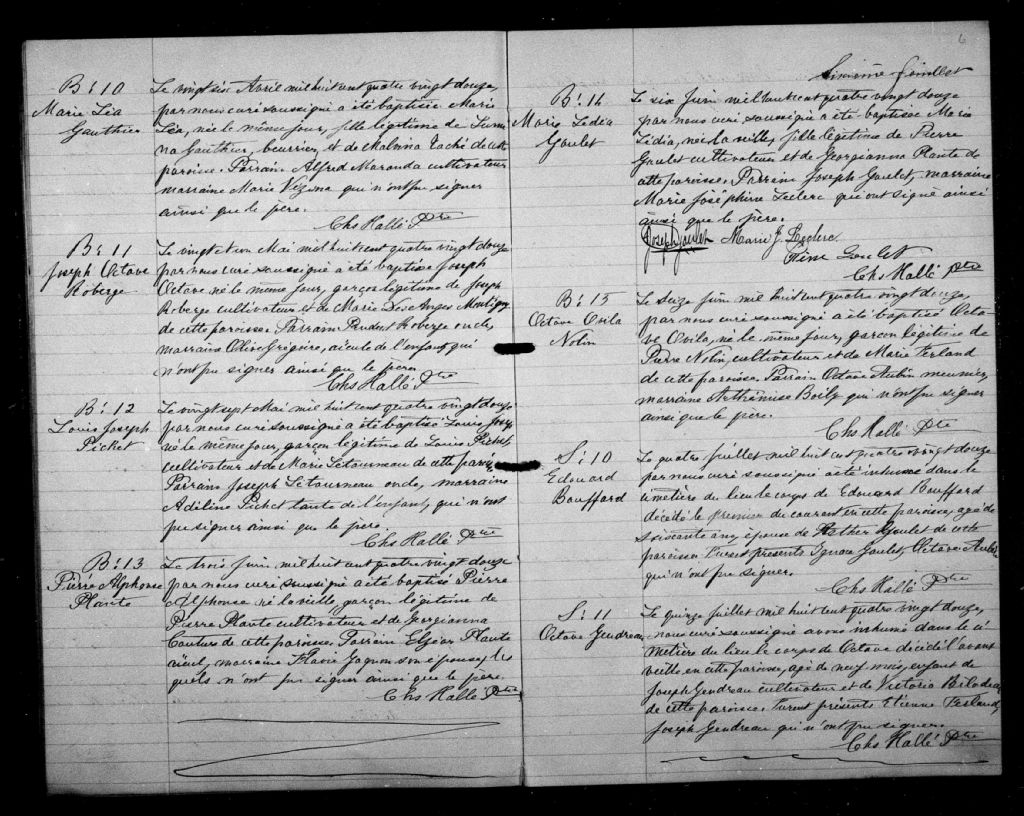 B: 10
Marie Léa
Gauthier
Le vingt six Avril mil huit cent quatre vingt douze
par nous curé soussigné a été baptisée Marie
Léa, née le même jour, fille légitime de
Gauthier, beurrier, et de Malvina Taché de cette
paroisse. Parrain Alfred Maranda cultivateur
marraine Marie Vézina qui n'ont pu signer
ainsi que le père.
Chs Hallé Ptre
B: 11
Joseph Octave
Roberge
Le vingt et un Mai mil huit cent quatre vingt douze
par nous curé soussigné a été baptisé Joseph
Octave né le même jour, garçon légitime de Joseph
Roberge cultivateur et de Marie Des Anges Montigny
de cette paroisse. Parrain Prudent Roberge oncle,
marraine Olive Grégoire, aieule de l'enfant, qui
n'ont pu signer ainsi que le père.
Chs Hallé Ptre
B: 12
Louis Joseph
Pichet
Le vingt sept Mai mil huit cent quatre vingt douze
par nous curé soussigné a été baptisé Louis Joseph
né le même jour, garçon légitime de Louis Pichet
cultivateur et de Marie Létourneau de cette paroisse
Parrain Joseph Létourneau oncle, marraine
Adéline Pichet tante de l'enfant, qui n'ont
pu signer ainsi que le père.
Chs Hallé Ptre
B: 13
Pierre Alphonse
Plante
Le trois Juin mil huit cent quatre vingt douze
par nous curé soussigné a été baptisé Pierre
Alphonse né la veille, garçon légitime de
Pierre Plante cultivateur et de Georgianna
Couture de cette paroisse. Parrain Elzéar Plante
aieul, marraine Flavie Gagnon son épouse, les
quels n'ont pu signer ainsi que le père.
Chs Hallé Ptre
6
Sixième feuillet
B: 14
Marie Lédia
Goulet
Le six Juin mil huit cent quatre vingt douze
par nous curé, soussigné a été baptisée Marie
Lédia, née la veille, fille légitime de Pierre
Goulet cultivateur et de Georgianna Plante de
cette paroisse. Parrain Joseph Goulet, marraine
Marie Joséphine Leclerc qui ont signé ainsi
que le père.
Joseph Goulet Marie J. Leclerc
Goulet
Chs Hallé Ptre
B: 15
Octave Ovila
Nolin
Le seize Juin mil huit cent quatre vingt douze,
par nous curé soussigné a été baptisé Octa-
ve Ovila, né le même jour, garçon légitime de
Pierre Nolin, cultivateur et de Marie Ferland
de cette paroisse. Parrain Octave Aubin meunier,
marraine Arthémise Boily qui n'ont pu signer
ainsi que le père.
Chs Hallé Ptre
S: 10
Edouard
Bouffard
Le quatre Juillet mil huit cent quatre vingt douze
par nous curé soussigné a été inhumé dans le
cimetière du lieu le corps de Edouard Bouffard
décédé le premier du courant en cette paroisse, agé de
soixante ans, époux de Esther Goulet de cette
paroisse. Furent présents Ignace Goulet, Octave Aubin
qui n'ont pu signer.
Chs Hallé Ptre
S: 11
Octave Gendreau
Le quinze Juillet mil huit cent quatre vingt douze,
nous curé soussigné avons inhumé dans le ci-
metière du lieu le corps de Octave décédé l'avant
veille en cette paroisse, agé de neuf mois, enfant de
Joseph Gendreau cultivateur et de Victoria Bilodeau
de cette paroisse. Furent présents Etienne Ferland,
Joseph Gendreau qui n'ont pu signer.
Chs Hallé Ptre